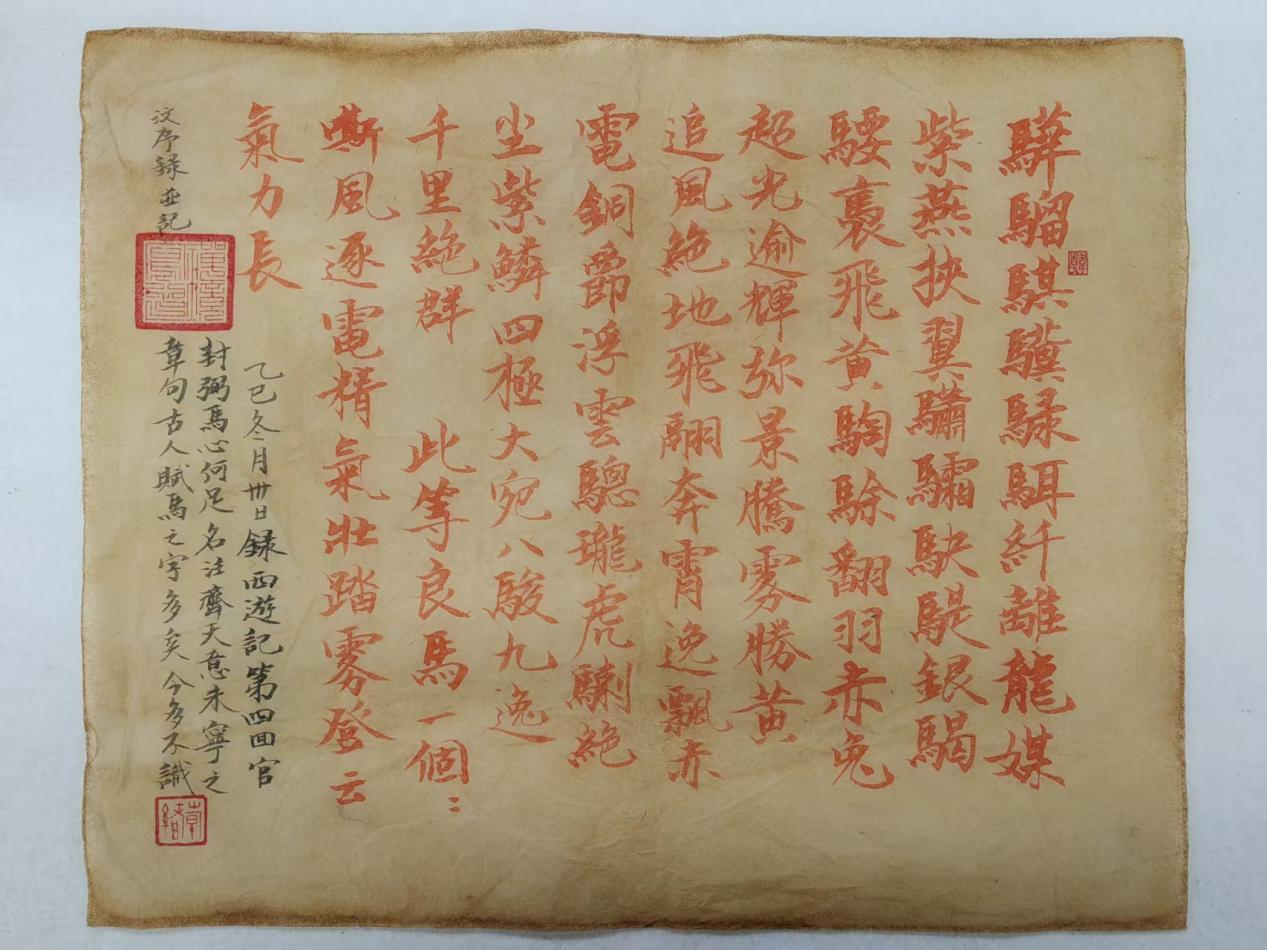 驊騮騏驥騄駬纖離龍媒
紫燕挾翼驌驦駃騠銀騔
騕褭飛黃騊駼翻羽赤兔
超光逾輝弥景騰雾勝黃
追風絕地飛翮奔霄逸飄赤
電銅爵浮雲驄瓏虎𩧄絕
尘紫鱗四極大宛八駿九逸
千里絕群　此等良馬一個〻
嘶風逐電精氣壯踏雾登云
氣力長
乙巳冬月卅日錄西遊記第四回官
封弼馬心何足名注齊天意未寧之
章句古人賦馬之字多矣今多不識
汶序録並記